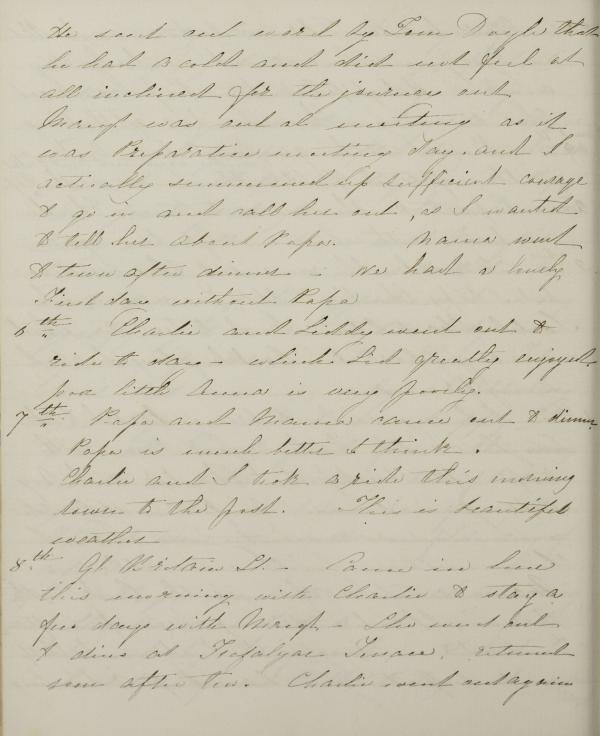 He sent out word by Tom Doyle that
he had a cold and did not feel at
all inclined for the journey out
Margt was out at meeting as it
was Preparative meeting day, and I
actually summoned up sufficient courage
to go in and call her out, as I wanted
to tell her about Papa. Mama went
to town after dinner - We had a lonely
First day without Papa
6th " Charlie and Liddy went out to
ride to day - which Lid greatly enjoyed.
poor little Anna is very poorly.
7th " Papa and Mama came out to dinner
Papa is much better I think.
Charlie and I took a ride this morning
down to the post. This is beautiful
weather
8th. Gt Britain St. - Came in here
this morning with Charlie to stay a
few days with Margt - She went out
to dine at Trafalgar Terrace, returned
soon after tea. Charlie went out again